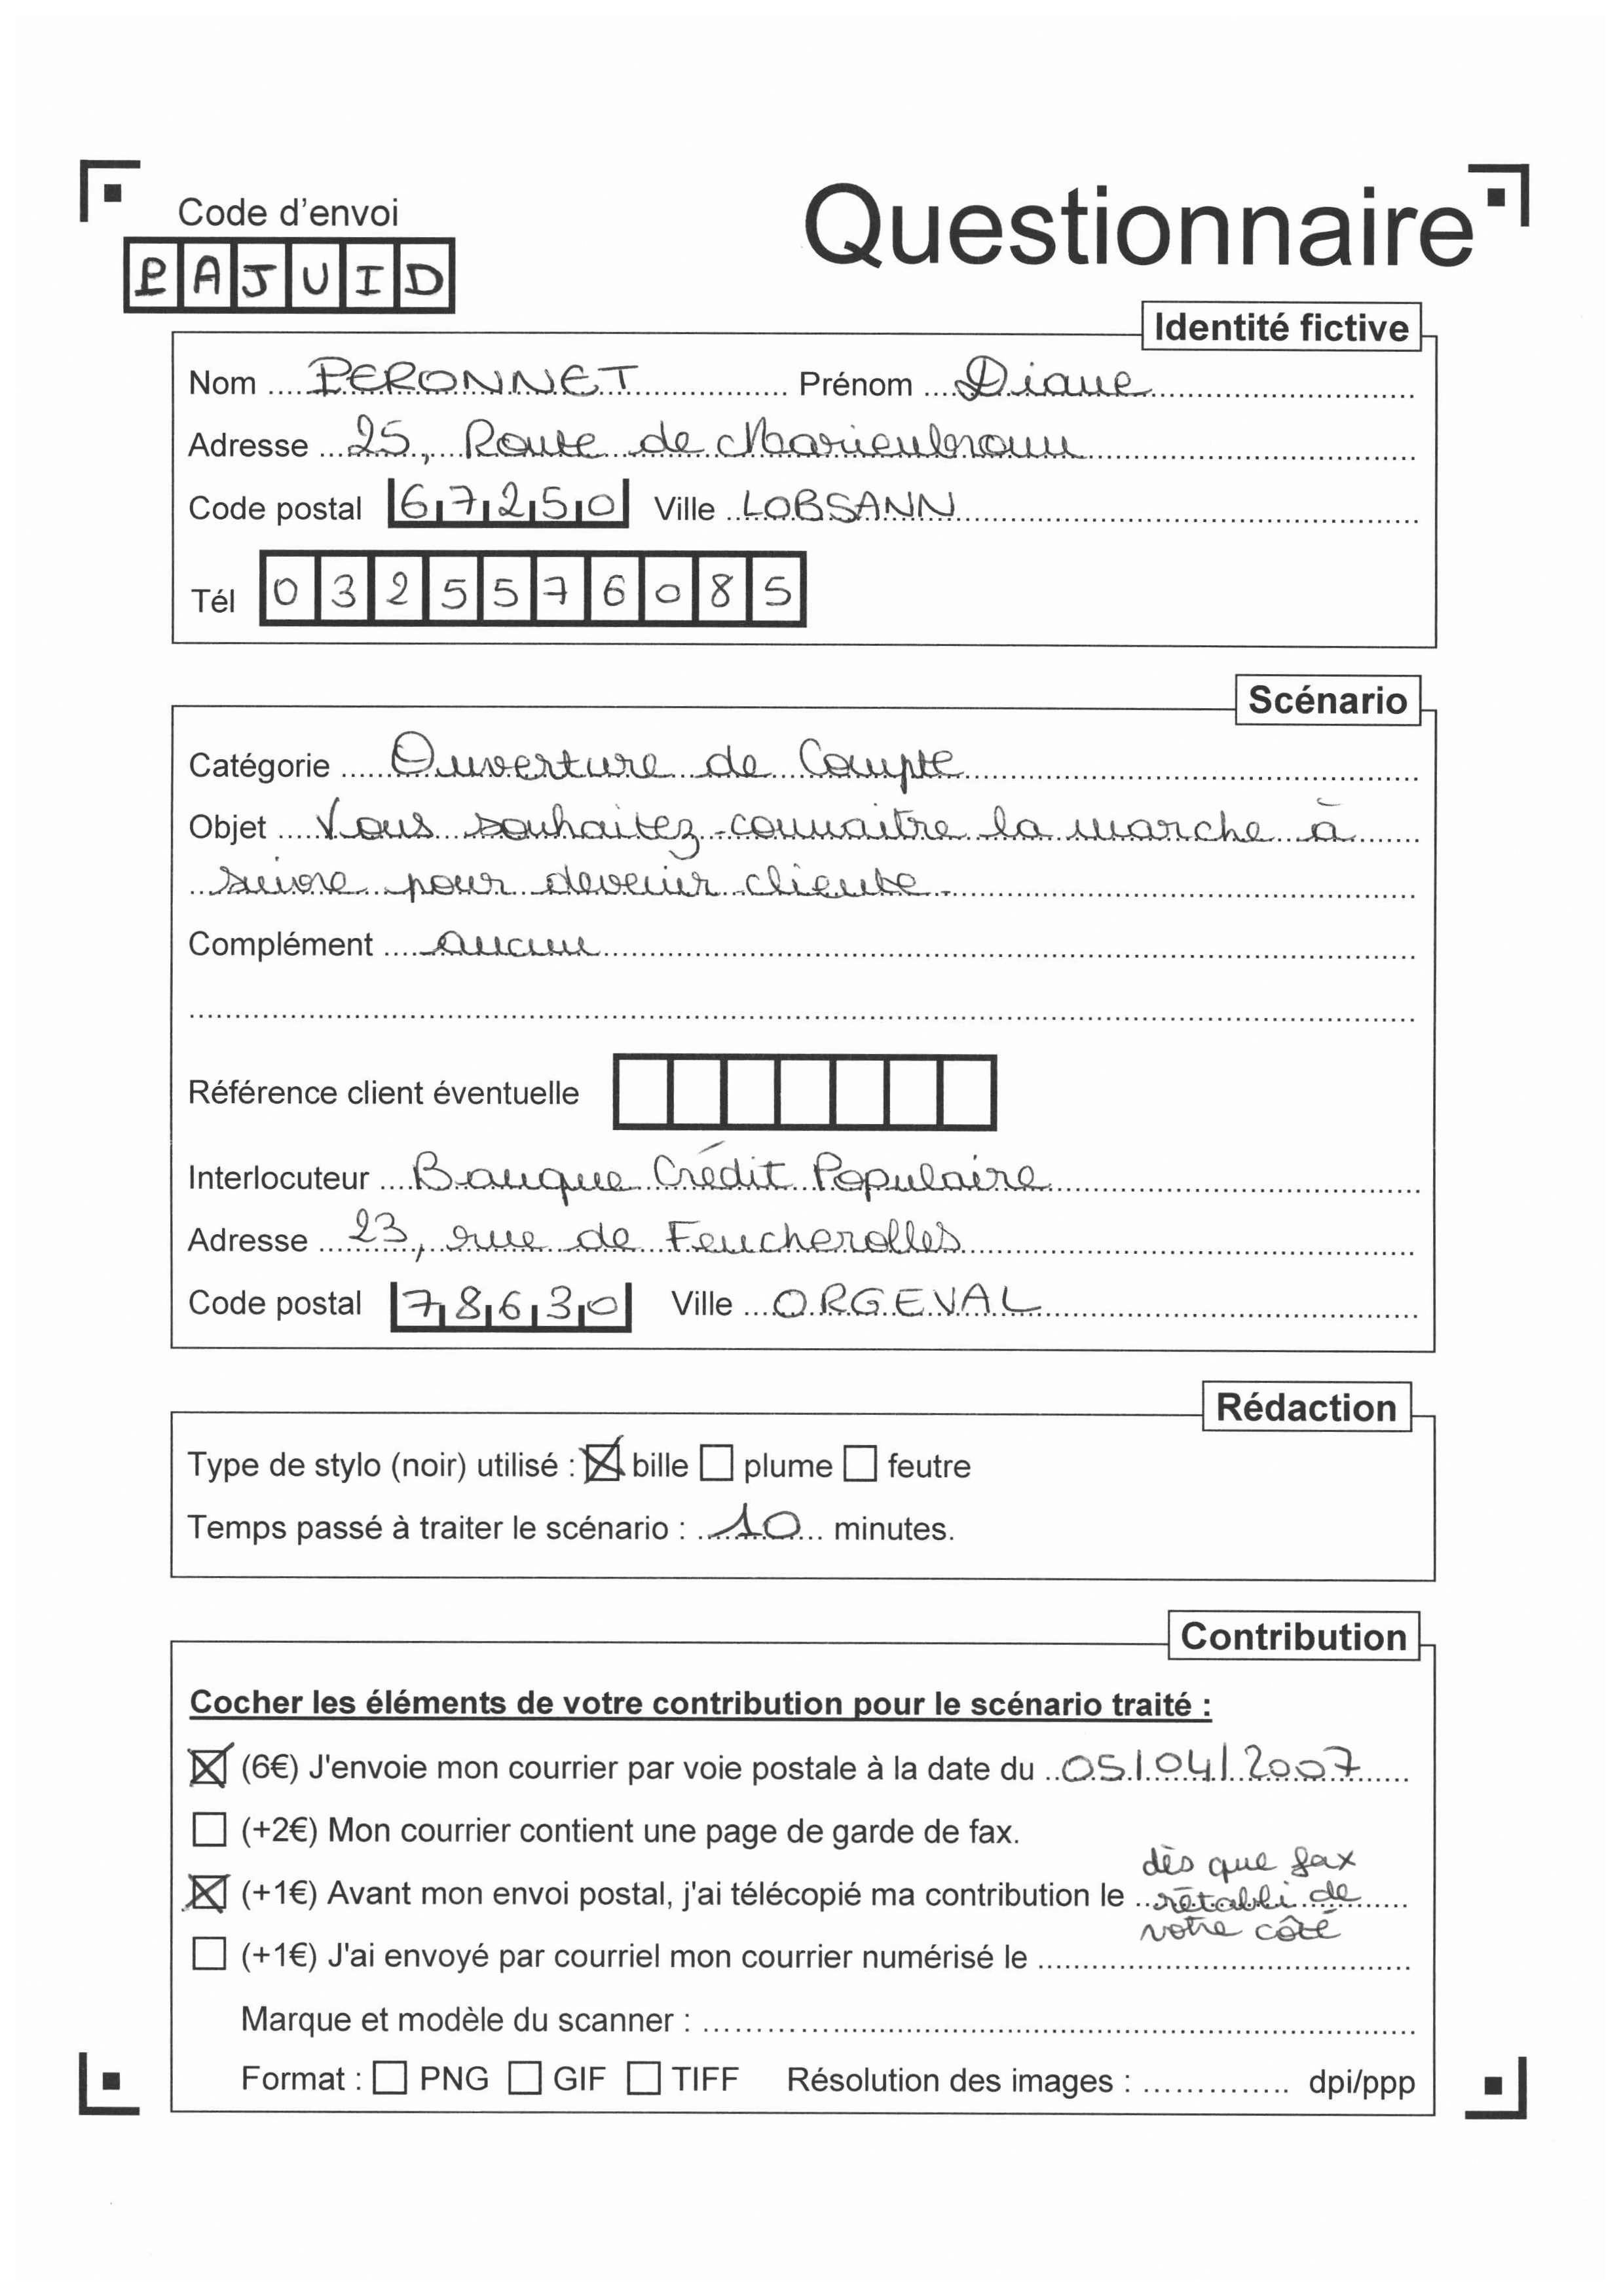 Code d'envoi
Questionnaire
PAJUID
Identité fictive
Nom PERONNET Prénom Diane
Adresse 25, Route de Marienbronn
Code postal 67250 Ville LOBSANN
Tél 0325576085
Scénario
Catégorie Ouverture de Compte
Objet Vous souhaitez connaitre la marche à
suivre pour devenir cliente.
Complément aucun
Référence client éventuelle
Interlocuteur Banque Crédit Populaire
Adresse 23, rue de Feucherolles
Code postal 78630 Ville ORGEVAL
Rédaction
Type de stylo (noir) utilisé : bille plume feutre
Temps passé à traiter le scénario : 10 minutes.
Contribution
Cocher les éléments de votre contribution pour le scénario traité :
(6€) J'envoie mon courrier par voie postale à la date du 05/04/2007
(+2€) Mon courrier contient une page de garde de fax.
dès que fax
(+1€) Avant mon envoi postal, j'ai télécopié ma contribution le rétabli de
votre côté
(+1€) J'ai envoyé par courriel mon courrier numérisé le
Marque et modèle du scanner :
Format : PNG GIF TIFF Résolution des images : dpi/ppp